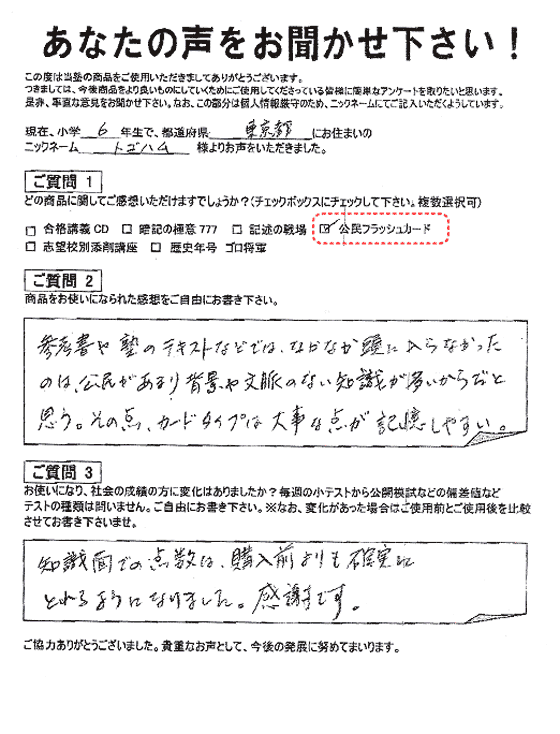 あなたの声をお聞かせ下さい！
この度は当塾の商品をご使用いただきましてありがとうございます。
つきましては、今後商品をより良いものにしていくためにご使用してくださっている皆様に簡単なアンケートを取りたいと思います。
是非、率直な意見をお聞かせ下さい。なお、この部分は個人情報厳守のため、ニックネームにてご記入いただくようしています。
現在、小学 6 年生で、都道府県 東京都 にお住まいの
ニックネーム トゴハム 様よりお声をいただきました。
ご質問 1
どの商品に関してご感想いただけますでしょうか?(チェックボックスにチェックして下さい。複数選択可)
□ 合格講義CD □ 暗記の極意777 □ 記述の戦場 ☑ 公民フラッシュカード
□ 志望校別添削講座 □ 歴史年号 ゴロ将軍
ご質問 2
商品をお使いになられた感想をご自由にお書き下さい。
参考書や塾のテキストなどでは、なかなか頭に入らなかった
のは、公民があまり背景や文脈のない知識が多いからだと
思う。その点、カードタイプは大事な点が記憶しやすい。
ご質問 3
お使いになり、社会の成績の方に変化はありましたか？毎週の小テストから公開模試などの偏差値など
テストの種類は問いません。ご自由にお書き下さい。※なお、変化があった場合はご使用前とご使用後を比較
させてお書き下さいませ。
知識面での点数は、購入前よりも確実に
とれるようになりました。感謝です。
ご協力ありがとうございました。貴重なお声として、今後の発展に努めてまいります。